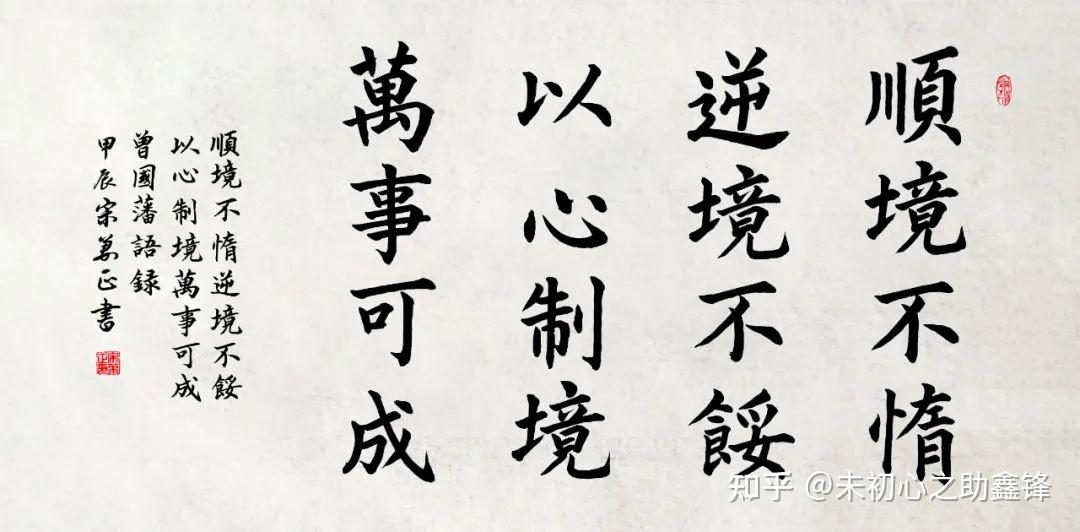 順境不惰
逆境不餒
以心制境
萬事可成
順境不惰逆境不餒
以心制境萬事可成
曾國藩語録
甲辰宗萬正書
知乎 @未初心之助鑫锋